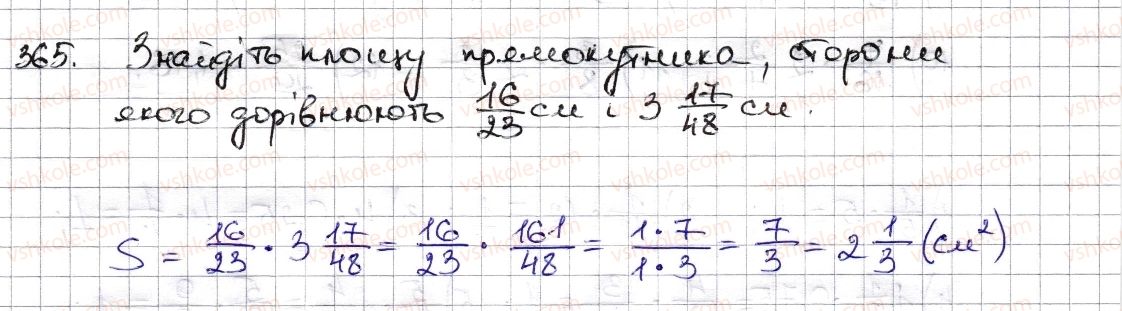 365. Знайдіть площу прямокутника, сторони
якого дорівнюють 16/23 см і 3 17/48 см.
S = 16/23 · 3 17/48 = 16/23 · 161/48 = 1·7/1·3 = 7/3 = 2 1/3 (см²)